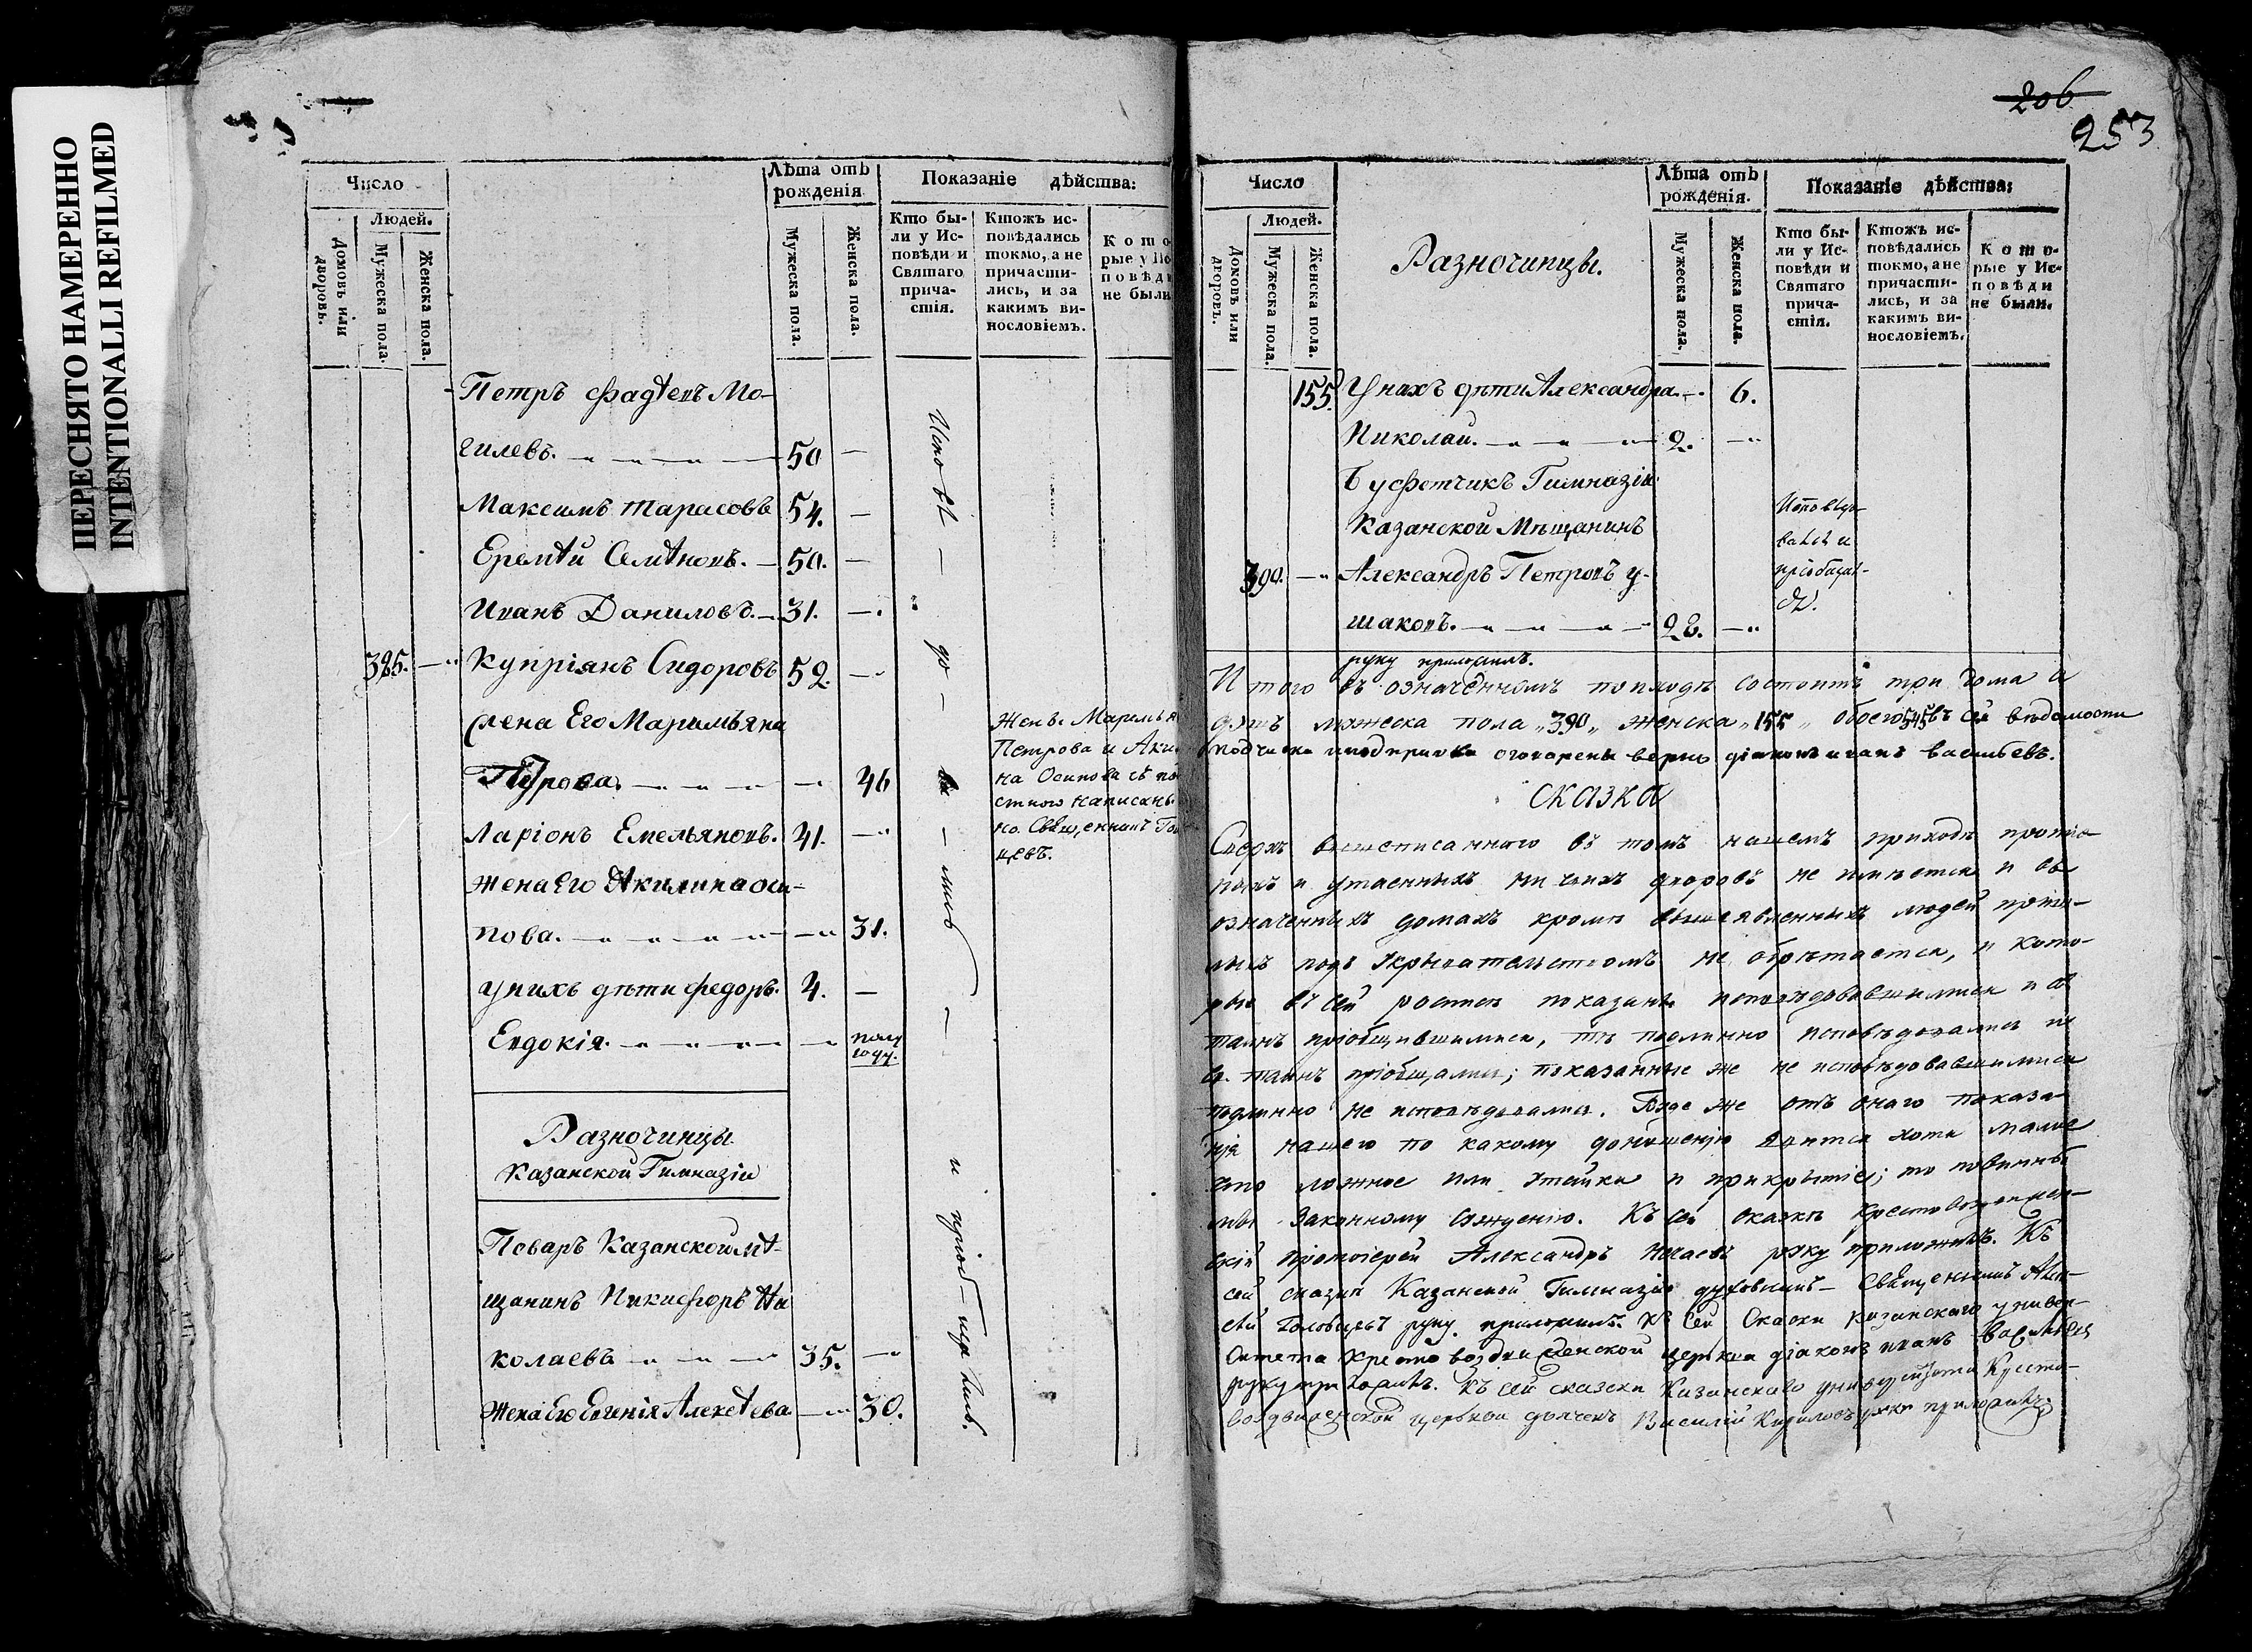 ПЕРЕСНЯТО НАМЕРЕННО
INTENTIONALLI REFILMED
Число
Людей.
Домовъ или дворовъ.
Мужеска пола.
Женска пола.
Лѣта отъ рожденія
Мужеска пола.
Женска пола.
Показаніе дѣйства:
Кто бы-
ли у Ис-
повѣди и
Святаго
прича-
стія.
Ктожъ ис-
повѣдались
токмо, а не
причасти-
лись, и за
какимъ ви-
нословіемъ.
Кото
рые у Ис
повѣди
не были
Петръ Фадѣевъ Мо-
гилевъ. 50 —
Максимъ Тарасовъ 54. —
Еремѣй Семѣновъ. — 50. —
Иванъ Даниловъ. — 31. —
325. — Купріянъ Сидоровъ 52. —
Жена Его Маримьяна
Петрова. — 46
Ларіонъ Емельяновъ. 41. —
Жена Его Акилина оси-
пова. — 31.
у нихъ дѣти Федоръ. 4. —
Евдокія. — полу
году.
Исповѣ — до — ва — лись — и пріоб — щались.
Женъ. Маремья
Петрова и Аки
на Осипова
написанъ.
но. Священникъ Го
цевъ.
Разночинцы
Казанской Гимназіи
Поваръ Казанской мѣ-
щанинъ Никифоръ Ни
колаевъ 35. —
Жена Его Евгенія Алексѣева — 30.
206
253
Число
Людей.
Домовъ или дворовъ.
Мужеска пола.
Женска пола.
Разночинцы.
Лѣта отъ рожденія.
Мужеска пола.
Женска пола.
Показаніе дѣйства:
Кто бы-
ли у Ис-
повѣди и
Святаго
прича-
стія.
Ктожъ ис-
повѣдались
токмо, а не
причасти-
лись, и за
какимъ ви-
нословіемъ.
Кото-
рые у Ис-
повѣди
не были.
155. У нихъ дѣти Александра — 6.
Николай. 2. —
Буфетчикъ Гимназіи
Казанской Мѣщанинъ
390. — Александръ Петровъ у-
шаковъ. 22. —
Исповѣдо-
вался и
пріобщал-
ся.
руку приложилъ.
Итого въ означенномъ приходѣ состоитъ три дома и
мужеска пола „390„ женска „155„ обоего 545 въ сей вѣдомости
подчистка и приправка оговорены вѣрно діаконъ иванъ васильевъ.
СКАЗКА
Сверхъ вышеписаннаго въ томъ нашемъ приходѣ прочи-
ихъ и утаенныхъ ни чьихъ дворовъ не имѣется и въ
означенныхъ домахъ кромѣ вышеявленныхъ людей прочи-
ихъ подъ укрывательствомъ не обрѣтается, и кото-
рые въ сей росписи показаны исповѣдовавшимися и св.
таинъ пріобщившимися, тѣ подлинно исповѣдовались и
св. таинъ пріобщались; показанные же не исповѣдовавшимися
подлинно не исповѣдовались. Буде же отъ онаго показа-
нія нашего по какому доношенію явится хотя малое
что ложное или утайка и прикрытіе; то повинны
мы законному сужденію. Къ сей сказкѣ Крестовоздвижен-
скій протоіерей Александръ Нечаевъ руку приложилъ. Къ
сей сказкѣ Казанской Гимназіи духовникъ Священникъ Алек-
сѣй руку приложилъ. Къ сей Сказки Казанскаго универ-
ситета Крестовоздвиженской церкви діаконъ иванъ Васильевъ
руку приложилъ. Къ сей сказски Казанскаго университета Кресто-
воздвиженской церькви дьячекъ Василій Кириловъ руку приложилъ